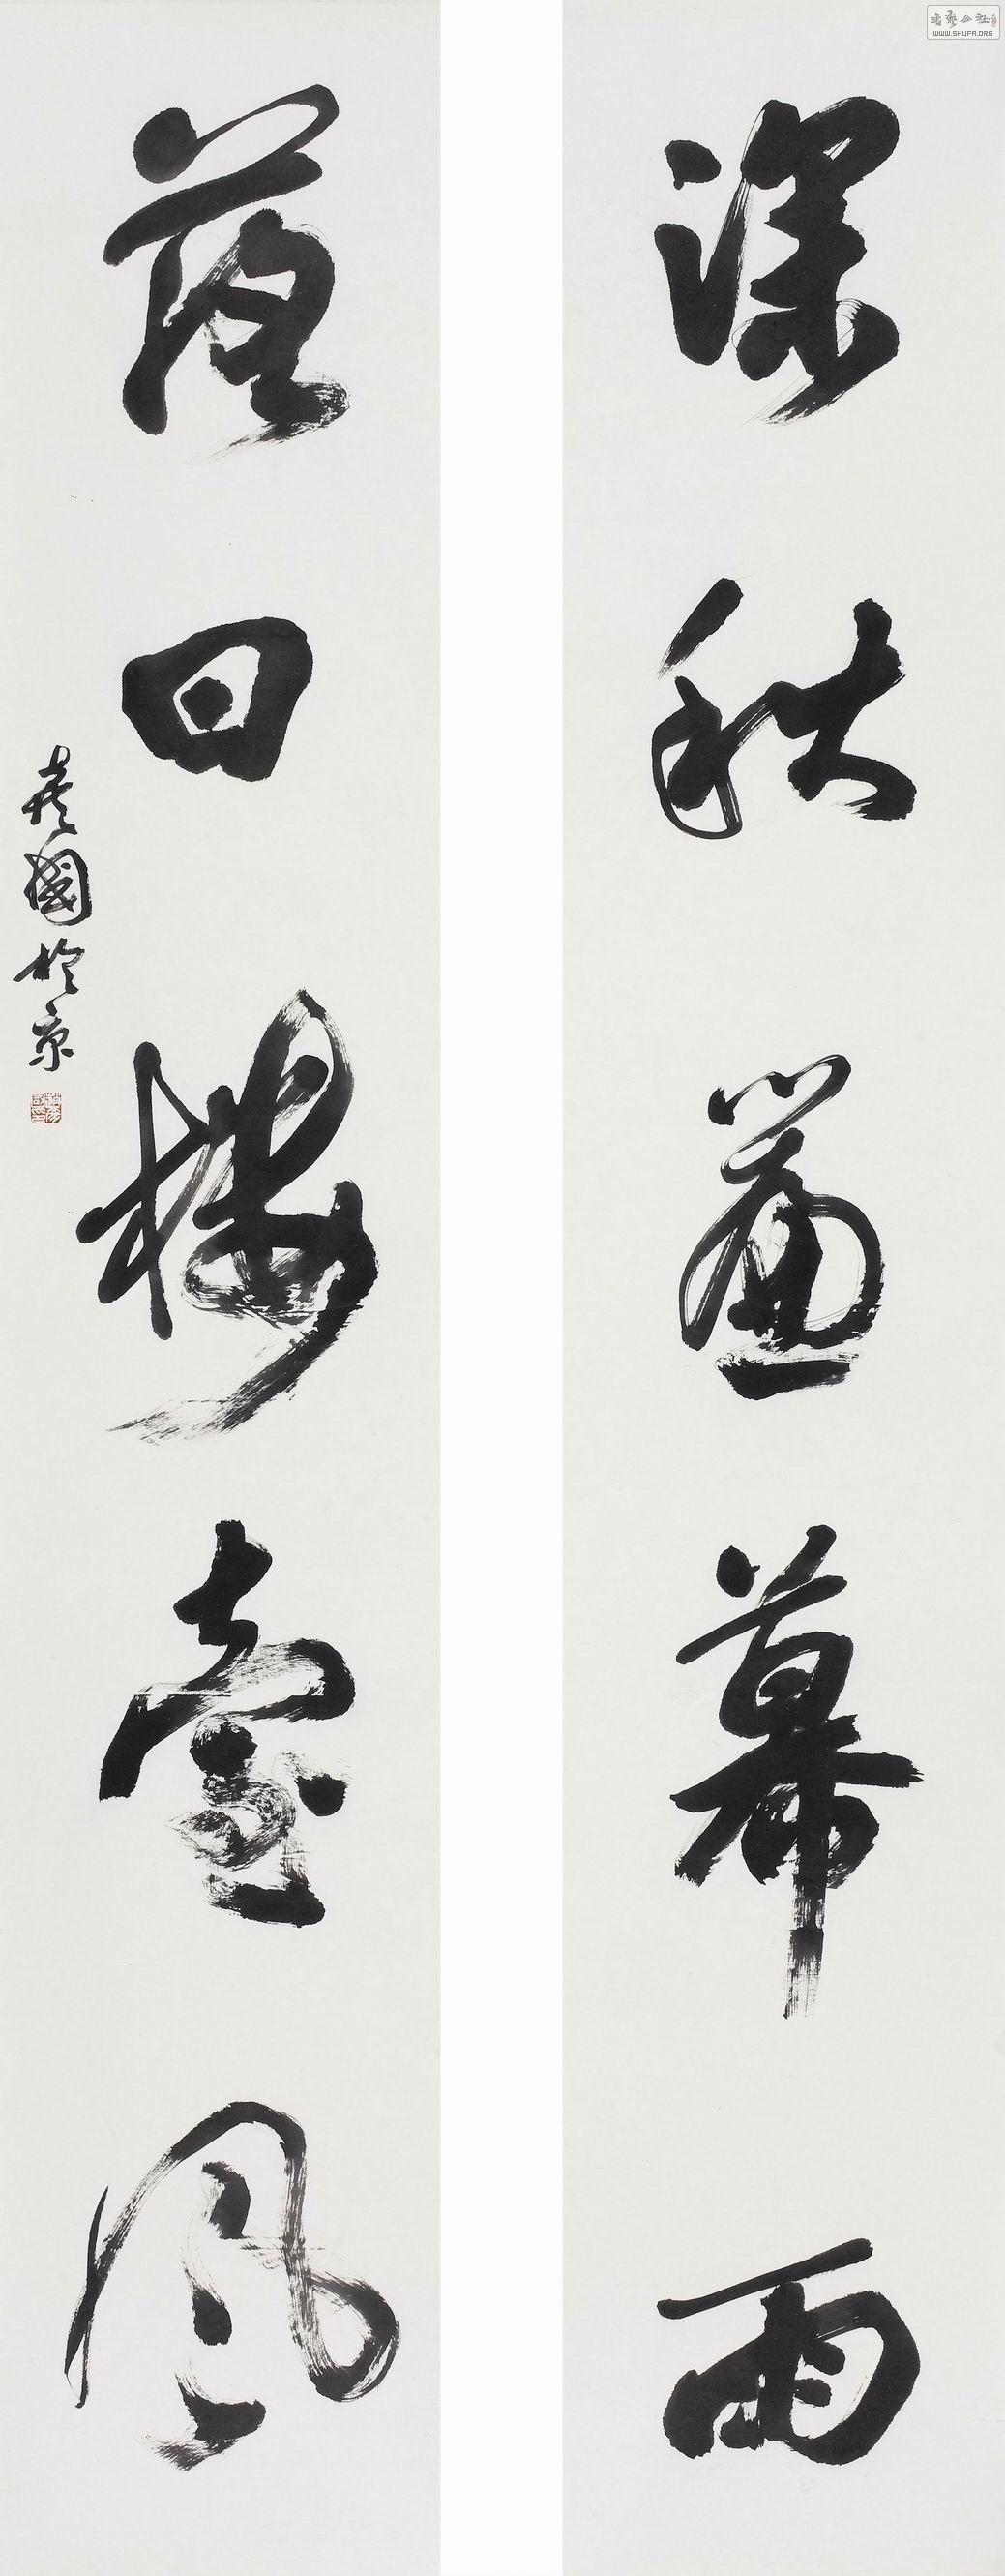 深秋簾幕雨
落日樓臺風
國於京
書藝公社
WWW.SHUFA.ORG